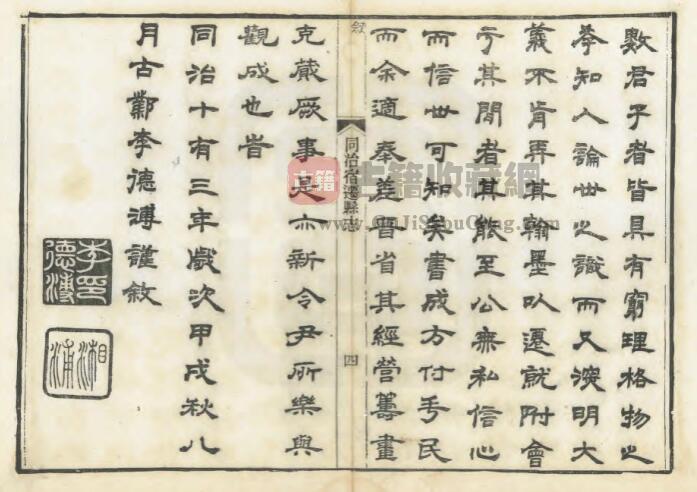 數君子者皆具有窮理格物之
學知人論世之識而又深明大
義不肯弄其翰墨以遷就附會
于其間者其能至公無私信心
而信世可知矣書成方付手民
而余適奉差晉省其經營籌畫
敘
同治宿遷縣志
四
克蕆厥事是亦新令尹所樂與
觀成也旹
同治十有三年歲次甲戌秋八
月古酇李德溥謹敘
李印
德溥
湘浦
古籍
古籍收藏網
www.GuJiShouCang.com